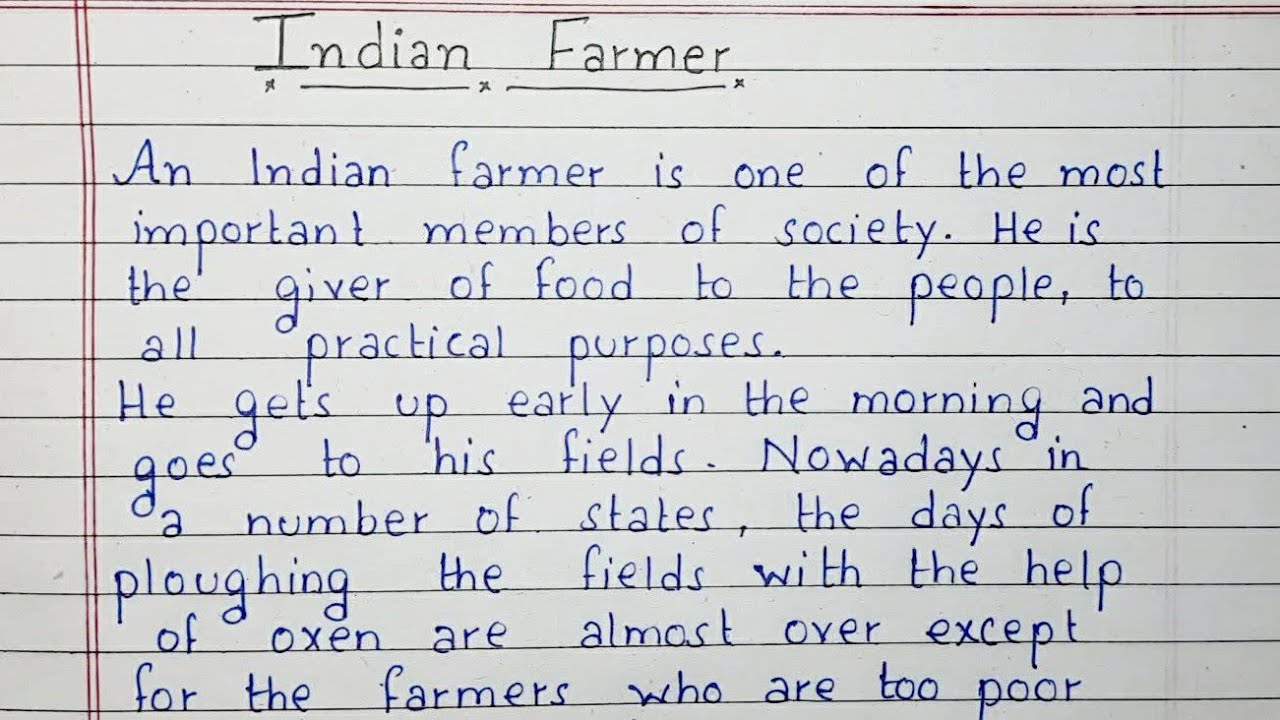 Indian Farmer
An Indian farmer is one of the most
important members of society. He is
the giver of food to the people, to
all practical purposes.
He gets up early in the morning and
goes to his fields. Nowadays in
a number of states, the days of
ploughing the fields with the help
of oxen are almost over except
for the farmers who are too poor